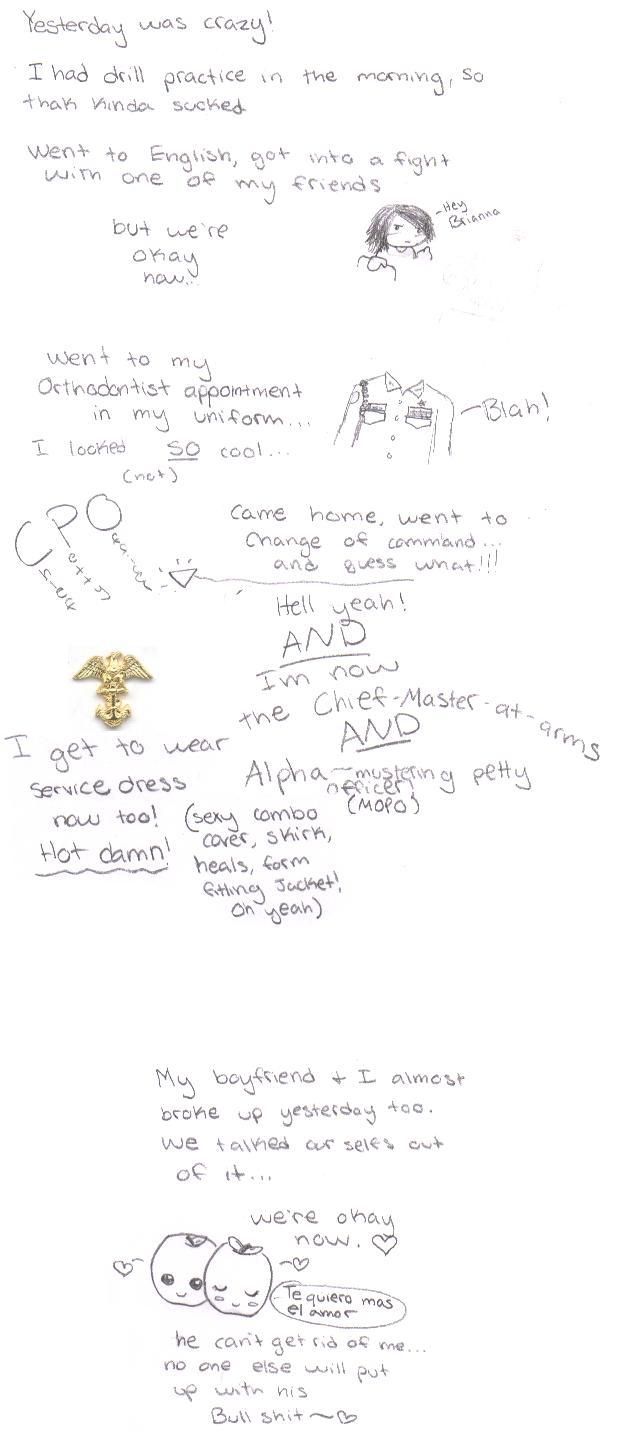 Yesterday was crazy!
I had drill practice in the morning, so
thak kinda sucked
Went to English, got into a fight
with one of my friends
but we're
okay
now...
-Hey
Brianna
went to my
Orthodontist appointment
in my uniform...
I looked SO cool...
(not)
Blah!
CPO
Chief
Petty
Officer
Came home, went to
Change of command...
and guess what!!!
Hell yeah!
AND
I'm now
the Chief-Master-at-arms
AND
Alpha mustering petty
officer!
(MOPO)
I get to wear
service dress
now too!
Hot damn!
(sexy combo
cover, skirk,
heals, form
fitting Jacket!
oh yeah)
My boyfriend + I almost
broke up yesterday too.
we talked our selfs out
of it...
we're okay
now. ♡
Te quiero mas
el amor
he can't get rid of me...
no one else will put
up with his
Bull shit ~♡